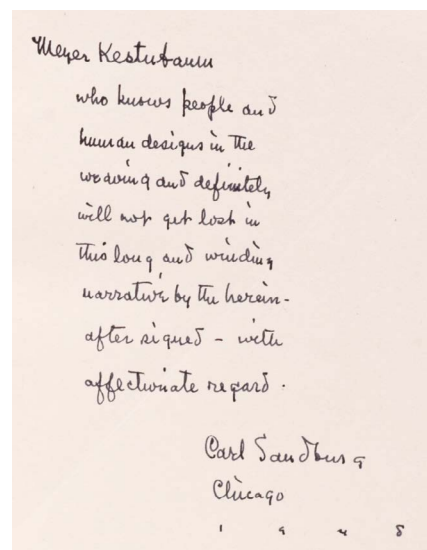 Meyer Kestnbaum
who knows people and
human designs in the
weaving and definitely
will not get lost in
this long and winding
narrative by the herein-
after signed - with
affectionate regard.
Carl Sandburg
Chicago
1 9 4 8